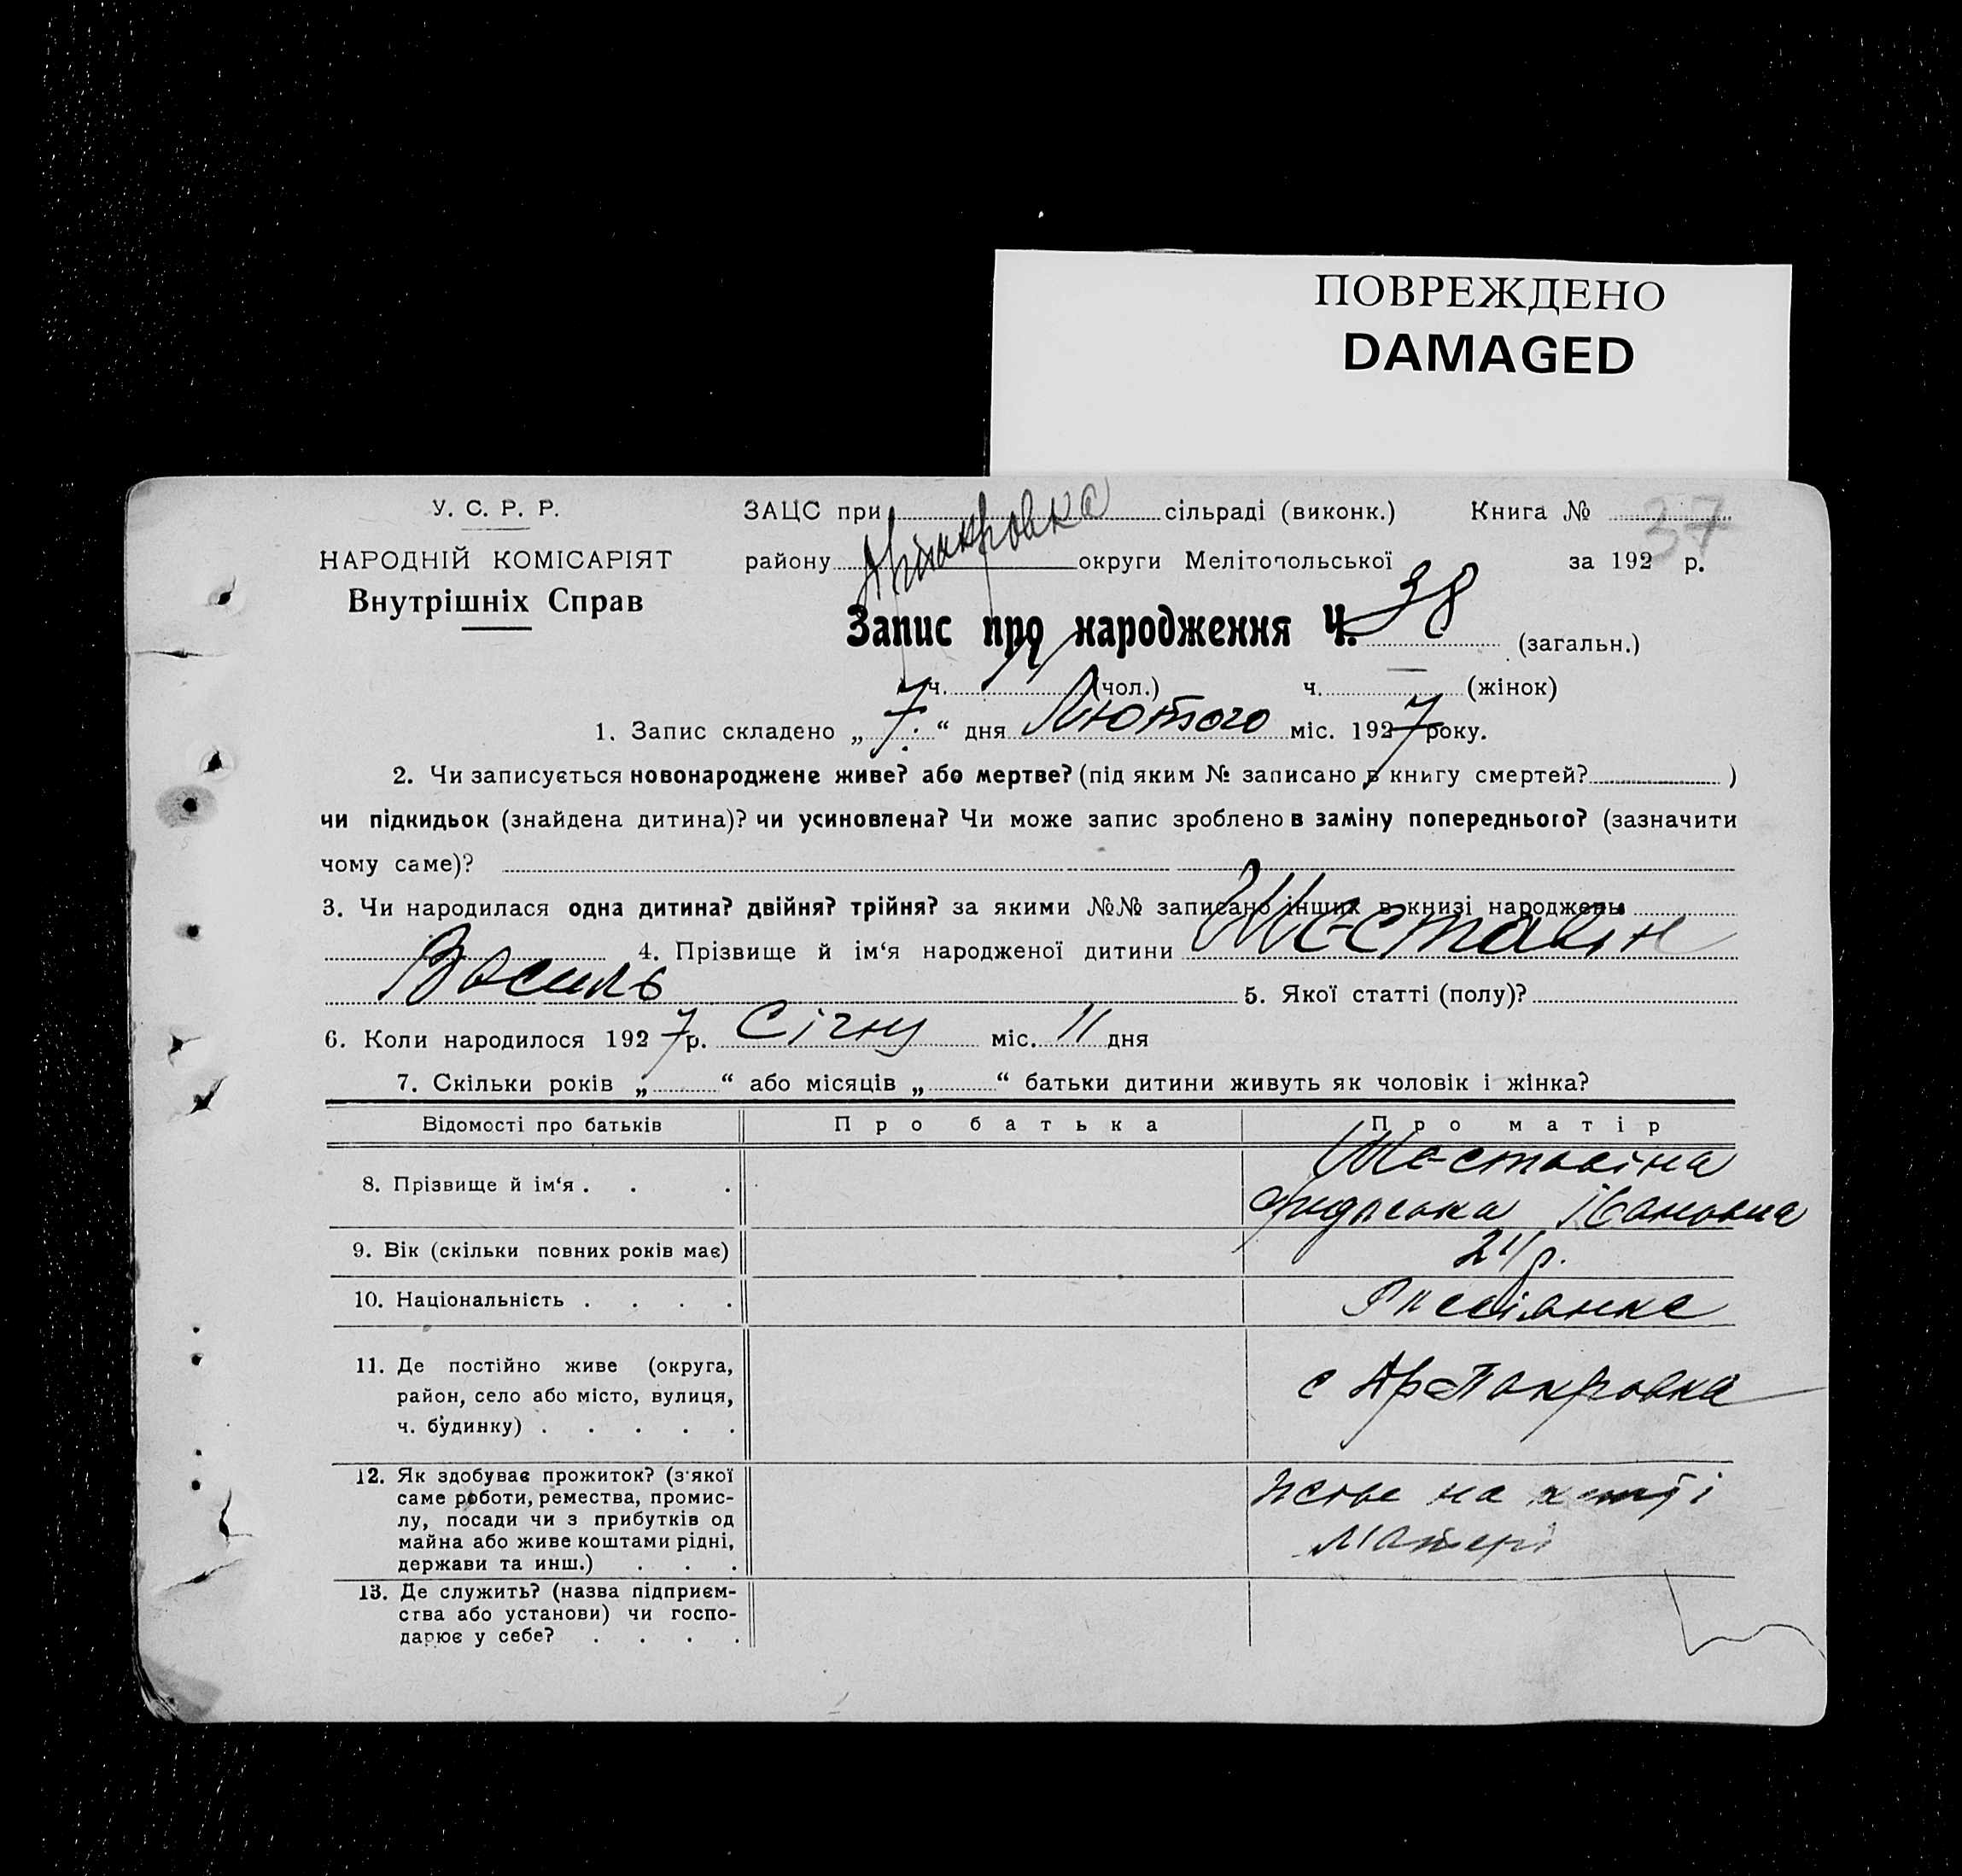 ПОВРЕЖДЕНО
DAMAGED
У. С. Р. Р.
НАРОДНІЙ КОМІСАРІЯТ
Внутрішніх Справ
ЗАЦС при сільраді (виконк.) Книга № 37
району округи Мелітопольської за 192 р.
Запис про народження Ч. 38 (загальн.)
ч. (чол.) ч. — (жінок)
1. Запис складено „ 7 “ дня Лютого міс. 1927 року.
2. Чи записується новонароджене живе? або мертве? (під яким № записано в книгу смертей? )
чи підкидьок (знайдена дитина)? чи усиновлена? Чи може запис зроблено в заміну попереднього? (зазначити
чому саме)?
3. Чи народилася одна дитина? двійня? трійня? за якими №№ записано інших в книзі народжень
4. Прізвище й ім‘я народженої дитини Шеставін
Василь 5. Якої статті (полу)?
6. Коли народилося 1927 р. Січну міс. 11 дня
7. Скільки років „ “ або місяців „ “ батьки дитини живуть як чоловік і жінка?
Відомості про батьків Про батька Про матір
8. Прізвище й ім‘я . . . Шеставіна
Івановна
9. Вік (скільки повних років має) 21 р.
10. Національність . . . .
11. Де постійно живе (округа,
район, село або місто, вулиця,
ч. будинку) . . . . .
с Ар Покровка
12. Як здобуває прожиток? (з якої
саме роботи, ремества, промис-
лу, посади чи з прибутків од
майна або живе коштами рідні,
держави та инш.) . . .
на
матері
13. Де служить? (назва підприєм-
ства або установи) чи госпо-
дарює у себе? . . . .